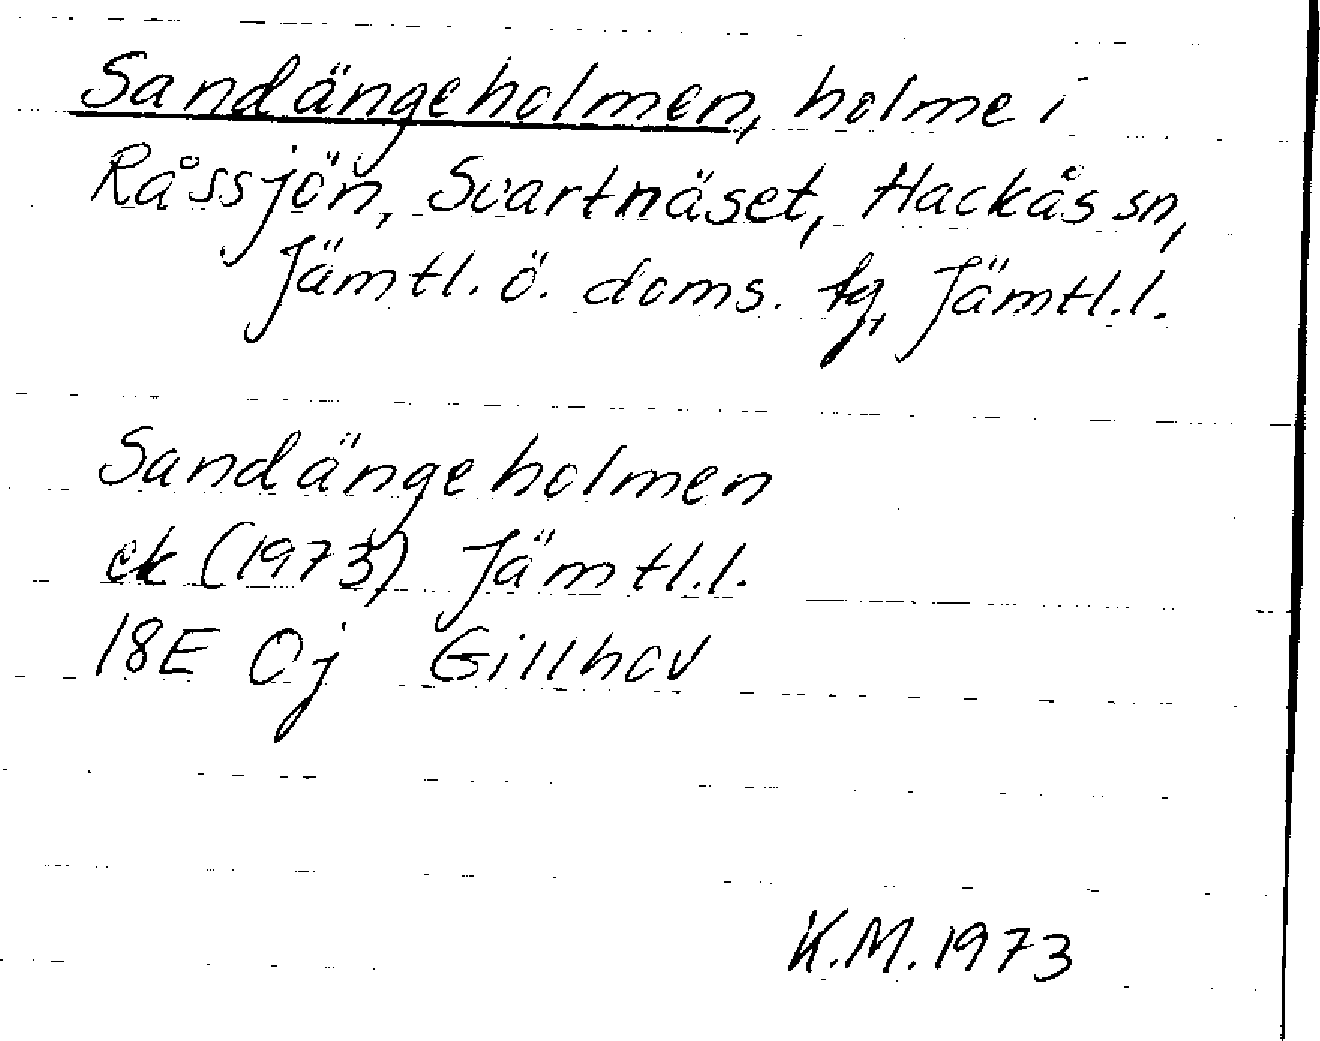 Sandängeholmen, holme i
Råssjön, Svartnäset, Hackås sn,
Jämtl. ö. doms. tg, Jämtl.l.
Sandängeholmen
ek (1973) Jämtl.l.
18E 0j Gillhov
K.M. 1973